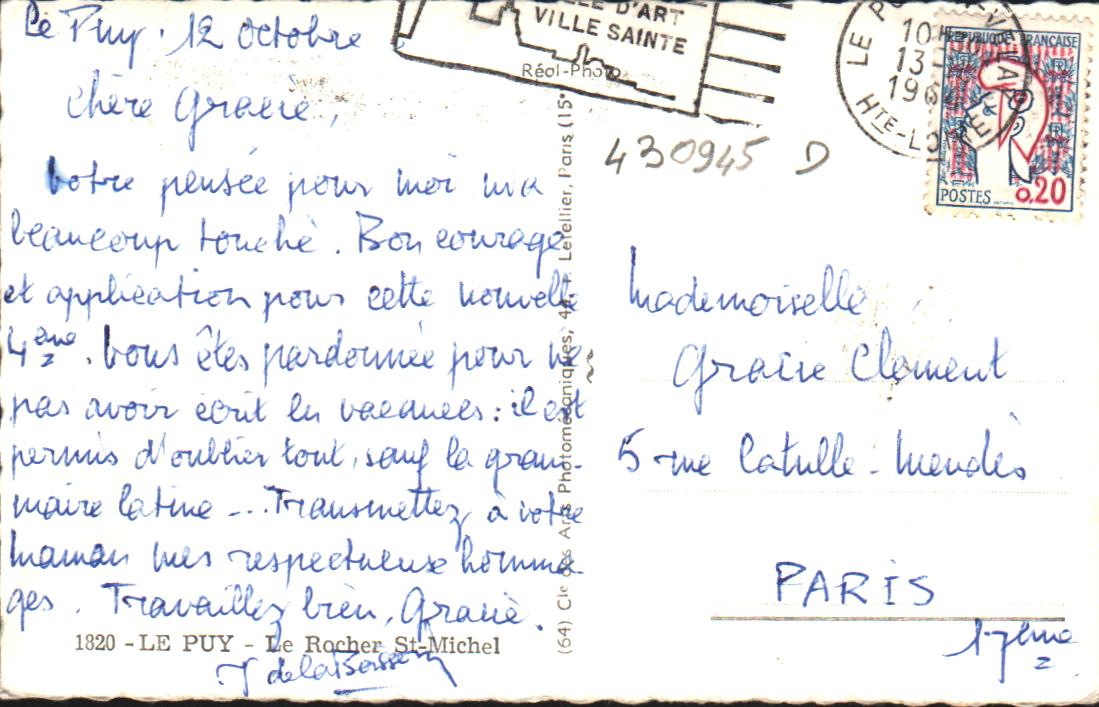 Le Puy. 12 octobre
Chère Gracie,
Votre pensée pour moi m'a
beaucoup touché. Bon courage
et application pour cette nouvelle
4ème. Vous êtes pardonnée pour ne
pas avoir écrit en vacances : il est
permis d'oublier tout, sauf la gram-
maire latine... Transmettez à votre
Maman mes respectueuse homma-
ges. Travaillez bien, Gracie.
1820 - LE PUY - Le Rocher St-Michel
J de la
D'ART
VILLE SAINTE
Réol-Photo
(64) Cie des Arts Photomécaniques, 44, r. Letellier, Paris (15e
430945 D
LE PUY-EN-VELAY
10H
13
196
HTE-LOIRE
REPUBLIQUE FRANÇAISE
POSTES 0,20
Mademoiselle
Gracie Clement
5 rue Catulle-Mendès
PARIS
17ème